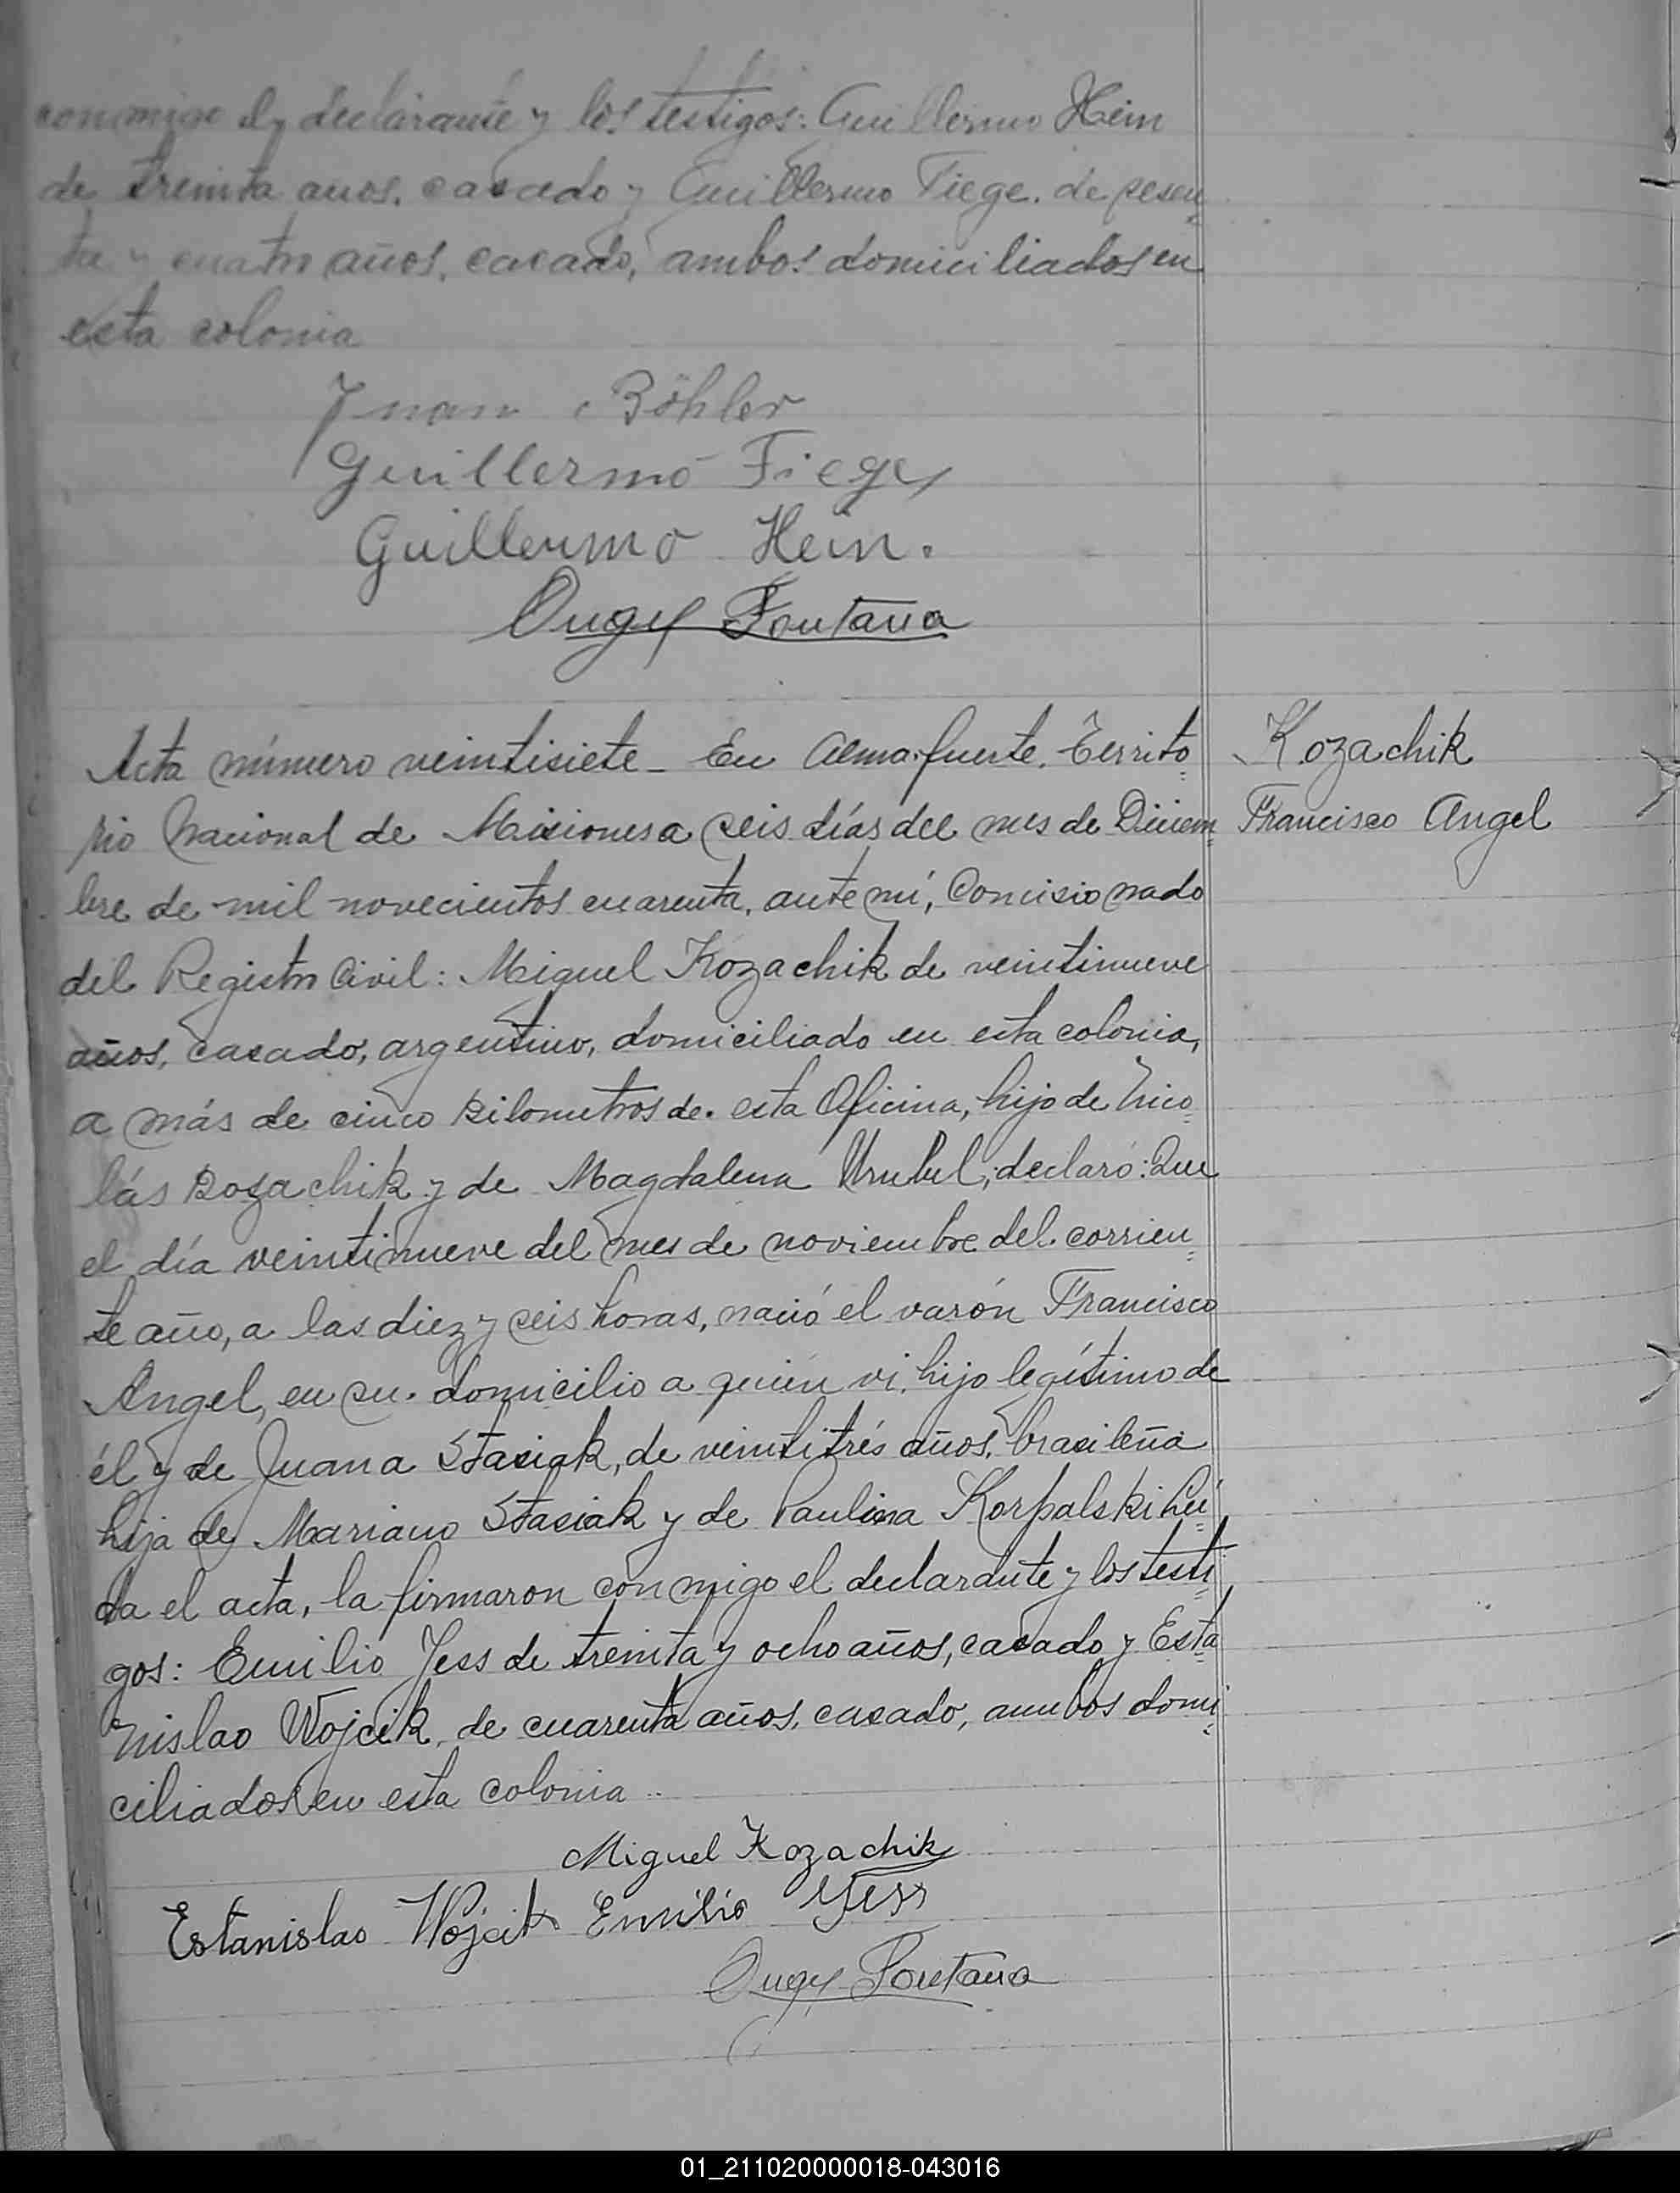 conmigo el declarante y los testigos: Guillermo Hein
de treinta años, casado y Guillermo Fiege, de sesen=
ta y cuatro años, casado, ambos domiciliados en
esta colonia
Juan Böhler
Guillermo Fiege
Guillermo Hein.
Fontana
Acta número veintisiete - En Almafuerte, Territo=
rio Nacional de Misiones a seis días del mes de Diciem=
bre de mil novecientos cuarenta, ante mí, Comisionado
del Registro Civil: Miguel Kozachik de veintinueve
años, casado, argentino, domiciliado en esta colonia,
a más de cinco kilometros de esta Oficina, hijo de Nico=
lás Kozachik y de Magdalena declaró: Que
el día veintinueve del mes de noviembre del corrien=
te año, a las diez y seis horas, nació el varón Francisco
Angel, en su domicilio a quien vi, hijo legítimo de
él y de Juana Stasiak, de veintitrés años, brasileña
hija de Mariano Stasiak y de Paulina Korpalski Leí=
da el acta, la firmaron conmigo el declarante y los testi=
gos: Emilio Jess de treinta y ocho años, casado y Esta=
nislao Wojcik, de cuarenta años, casado, ambos domi=
ciliados en esta colonia
Miguel Kozachik
Estanislao Wojcik Emilio Yess
Fontana
Kozachik
Francisco Angel
01_211020000018-043016